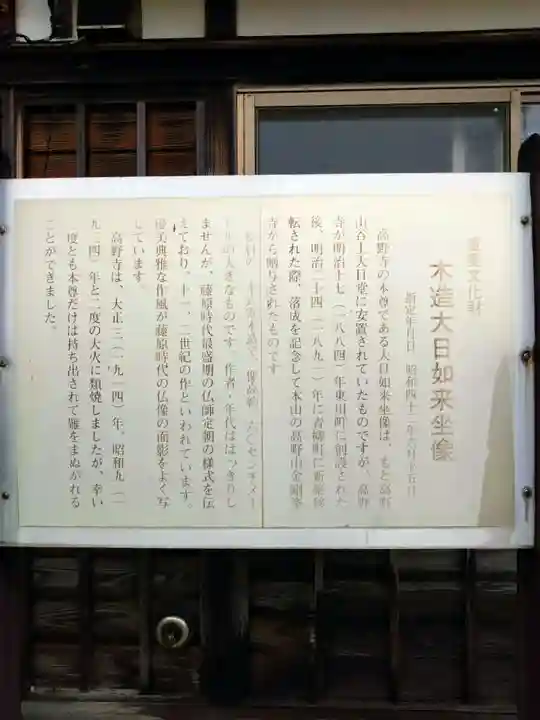 重要文化財
木造大日如来坐像
指定年月日 昭和四十二年六月十五日
高野寺の本尊である大日如来坐像は、もと高野
山谷上大日堂に安置されていたものですが、高野
寺が明治十七(一八八四)年東川町に創設された
後、明治二十四(一八九一)年に青柳町に新築移
転された際、落成を記念して本山の高野山金剛峯
寺から贈られたものです。
像高
六〇センチメー
の大きなものです。作者・年代ははっきりし
ませんが、藤原時代最盛期の仏師定朝の様式を伝
えており、十一、二世紀の作といわれています。
優美典雅な作風が藤原時代の仏像の面影をよく写
しています。
高野寺は、大正三(一九一四)年、昭和九(一
九三四)年と二度の大火に類焼しましたが、幸い
二度とも本尊だけは持ち出されて難をまぬがれる
ことができました。